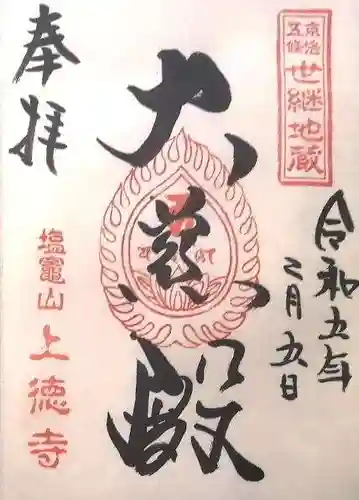 京都五條
世継地蔵
令和五年
二月五日
大慈殿
奉拝
塩竈山
上徳寺